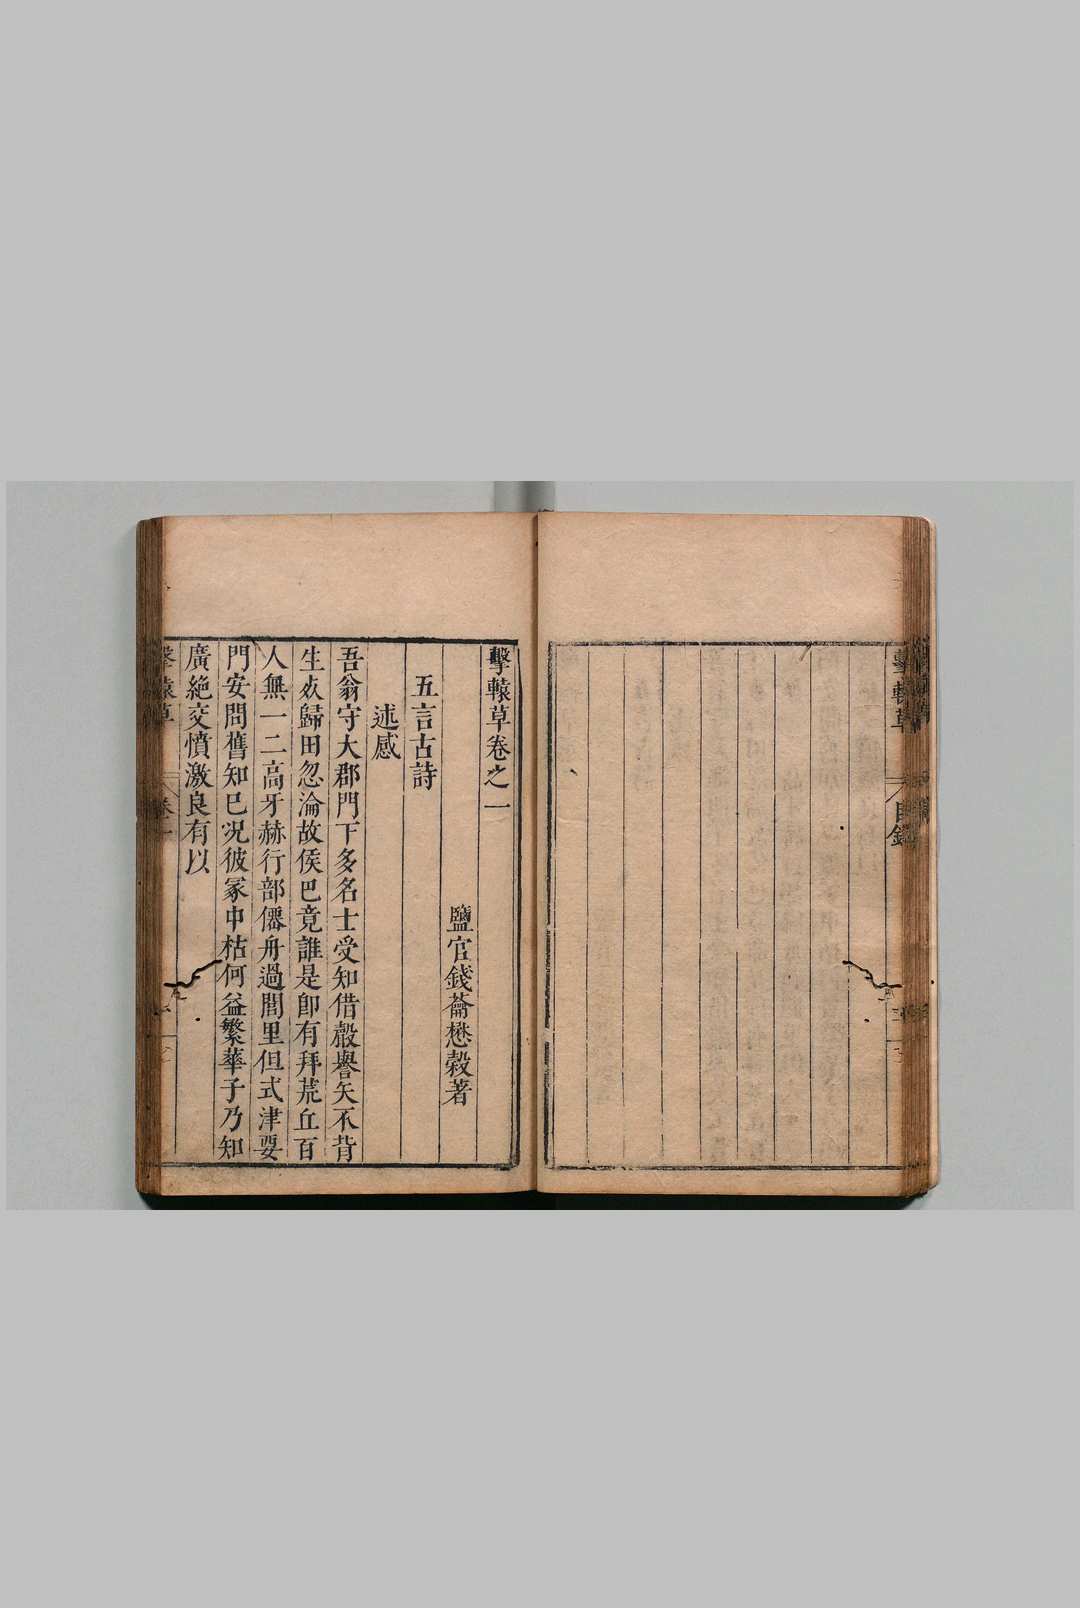 擊轅草
目錄
擊轅草卷之一
鹽官錢懋穀著
五言古詩
述感
吾翁守大郡門下多名士受知借聲譽矢不背
生死歸田忽淪故侯巴竟誰是卽有拜荒丘百
人無一二高牙赫行部僊舟過閭里但式津要
門安問舊知巳况彼冢中枯何益繁華子乃知
廣絶交憤激良有以
擊轅草
卷一